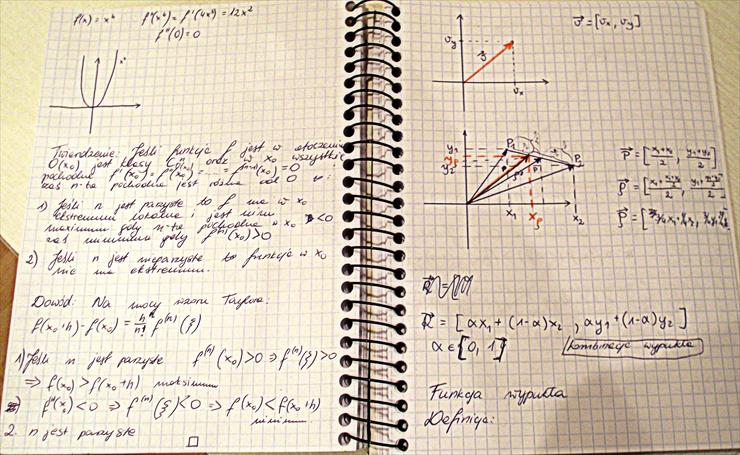 f(x) = x⁴ f''(x⁴) = f'(4x³) = 12x²
f''(0) = 0
x⁴
Twierdzenie: Jeśli funkcja f jest w otoczeniu
O(x₀) jest klasy oraz w x₀ wszystkie
pochodne f'(x₀) = f''(x₀) = ... = f⁽ⁿ⁻¹⁾(x₀) = 0
zaś n-ta pochodna jest różna od 0 to:
1) Jeśli n jest parzyste to f ma w x₀
ekstremum lokalne i jest nim
maximum gdy n-ta pochodna w x₀ < 0
zaś minimum gdy f⁽ⁿ⁾(x₀) > 0
2) Jeśli n jest nieparzyste to funkcja w x₀
nie ma ekstremum.
Dowód: Na mocy wzoru Taylora:
f(x₀+h) - f(x₀) = hⁿ/n! f⁽ⁿ⁾(ξ)
1) Jeśli n jest parzyste f⁽ⁿ⁾(x₀) > 0 ⇒ f⁽ⁿ⁾(ξ) > 0
⇒ f(x₀) > f(x₀+h) maksimum
< 0 ⇒ f⁽ⁿ⁾(ξ) < 0 ⇒ f(x₀) < f(x₀+h)
minimum
2. n jest parzyste
v⃗ = [vₓ, v_y]
v_y
vₓ
y₁
y₂
P₁
P₂
x₁
x₂
P⃗ = [(x₁+x₂)/2, (y₁+y₂)/2]
= [αx₁ + (1-α)x₂, αy₁ + (1-α)y₂]
α ∈ [0, 1] kombinacja wypukła
Funkcja wypukła
Definicja: